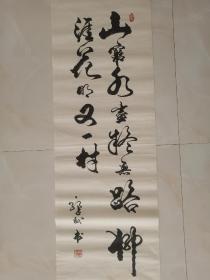 山窮水盡疑無路柳
暗花明又一村
书